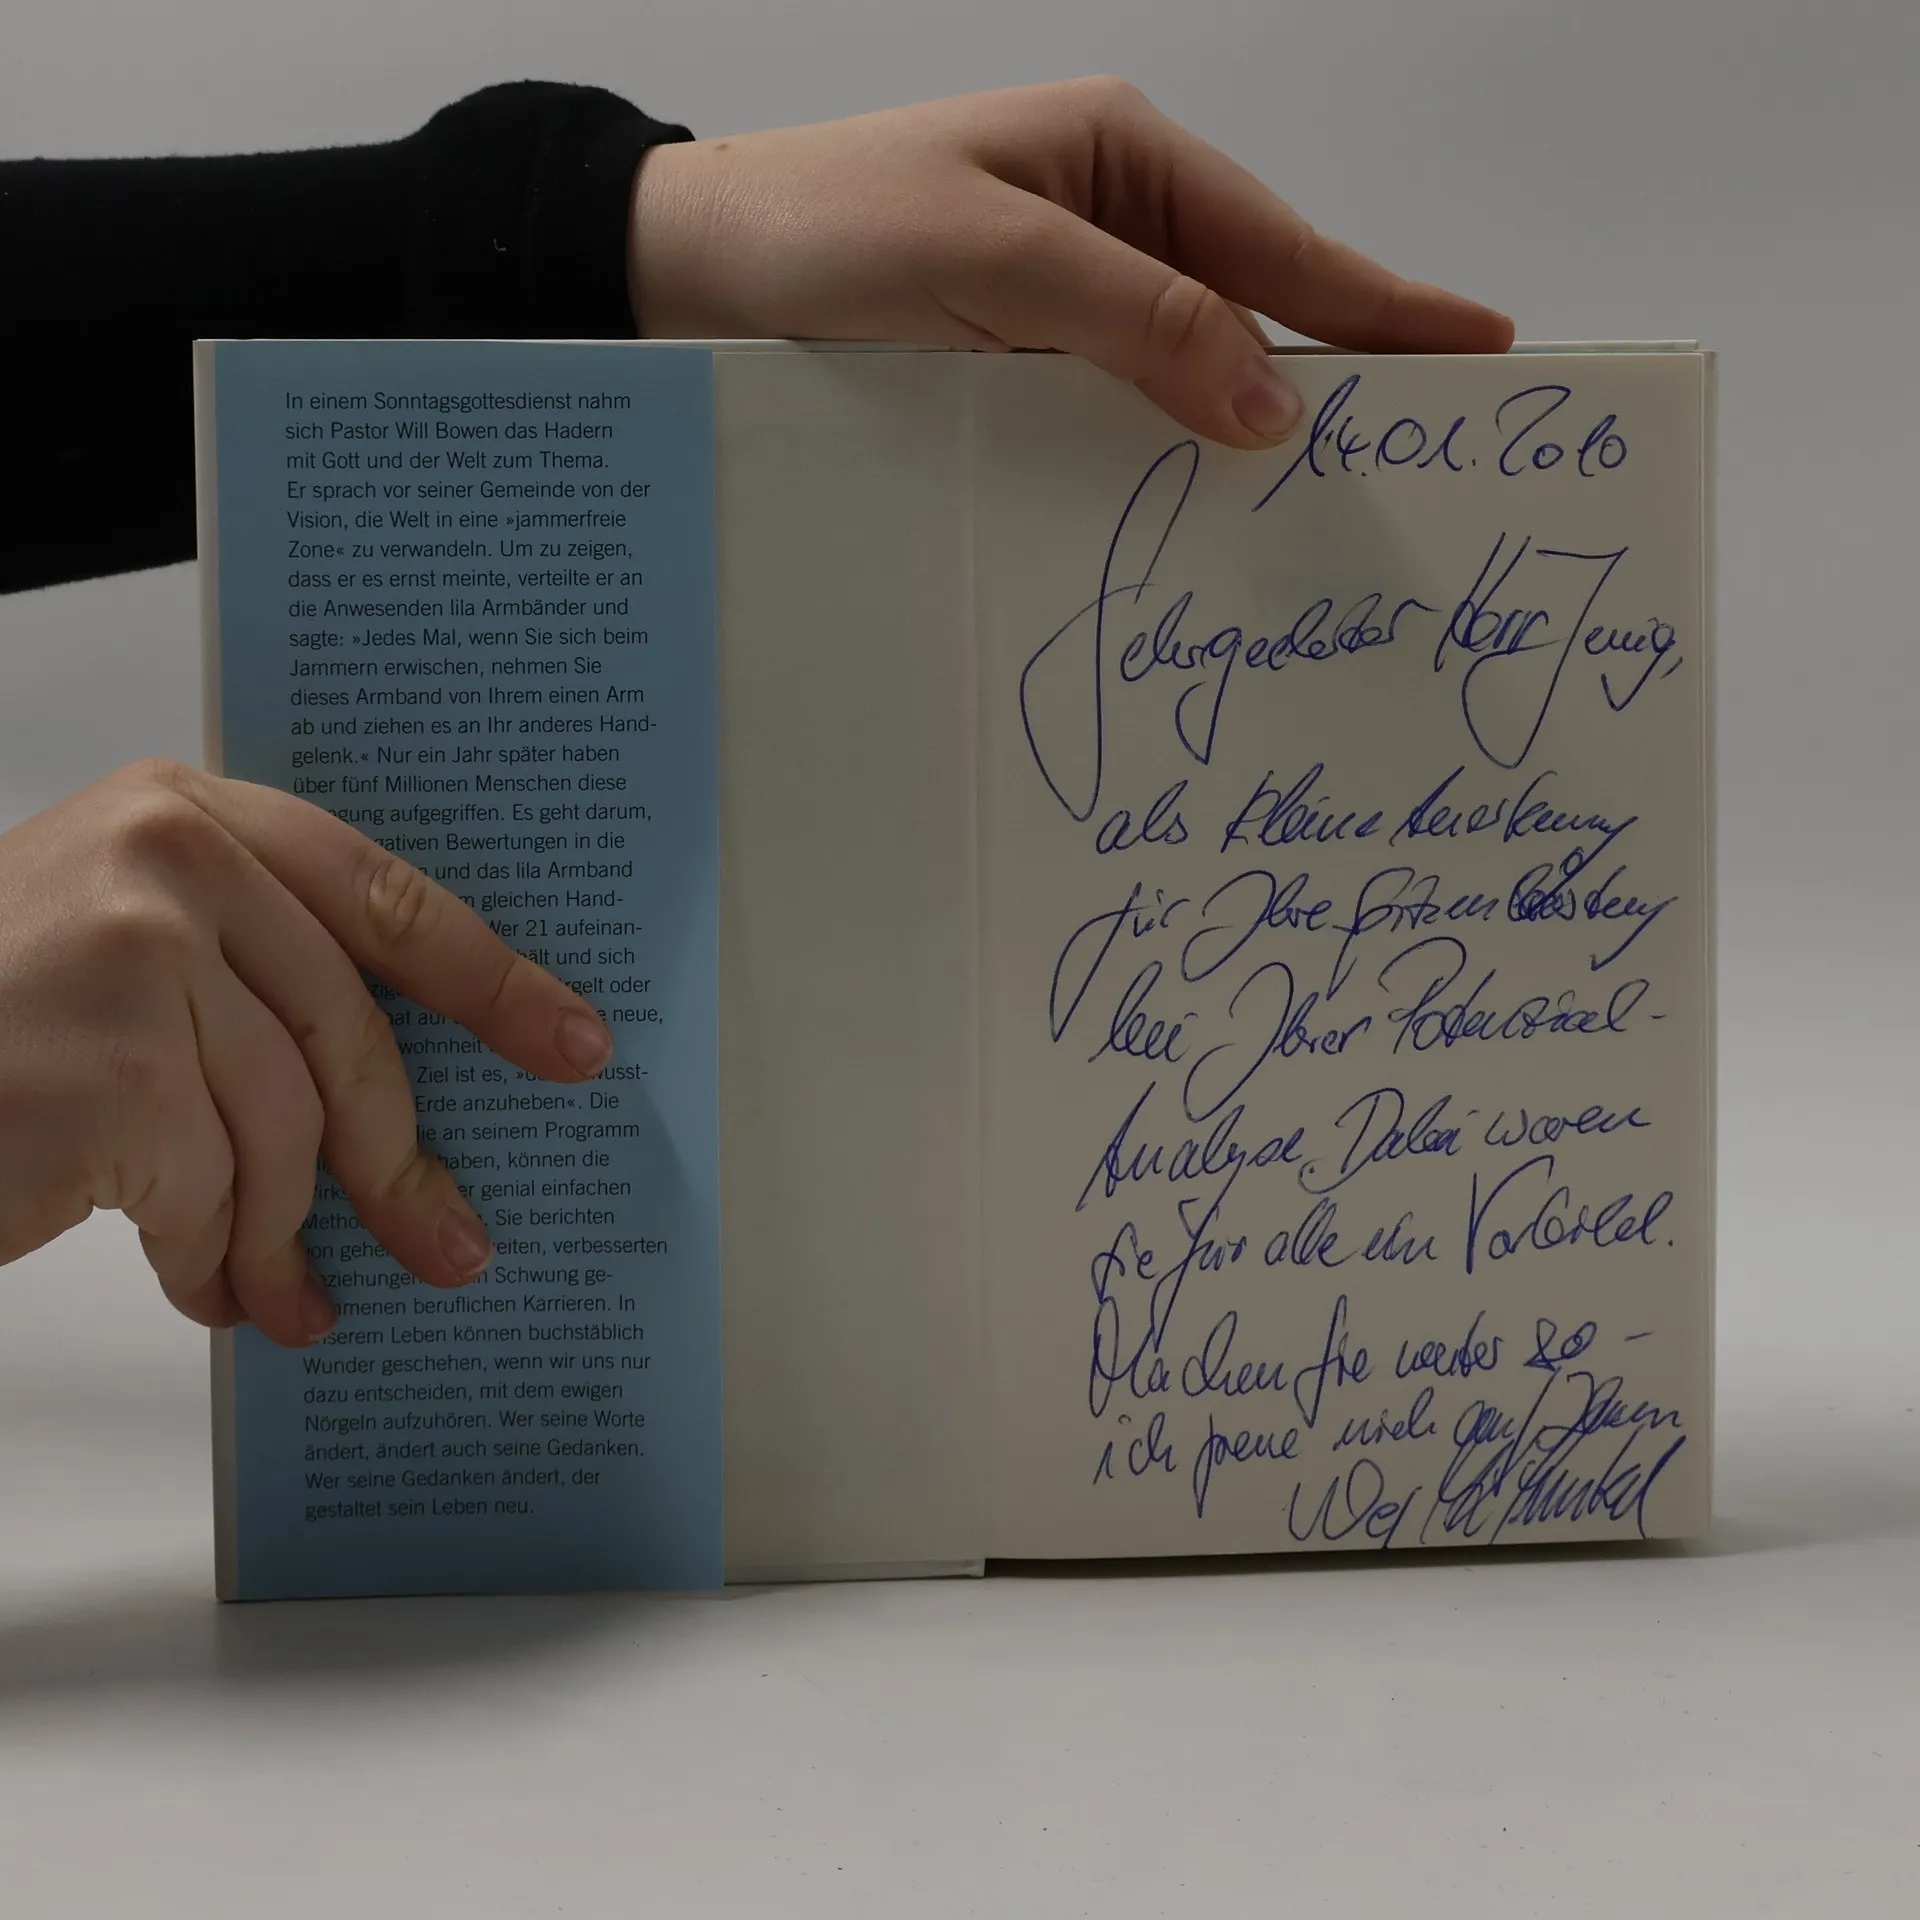 In einem Sonntagsgottesdienst nahm
sich Pastor Will Bowen das Hadern
mit Gott und der Welt zum Thema.
Er sprach vor seiner Gemeinde von der
Vision, die Welt in eine »jammerfreie
Zone« zu verwandeln. Um zu zeigen,
dass er es ernst meinte, verteilte er an
die Anwesenden lila Armbänder und
sagte: »Jedes Mal, wenn Sie sich beim
Jammern erwischen, nehmen Sie
dieses Armband von Ihrem einen Arm
ab und ziehen es an Ihr anderes Hand-
gelenk.« Nur ein Jahr später haben
über fünf Millionen Menschen diese
gung aufgegriffen. Es geht darum,
gativen Bewertungen in die
und das lila Armband
gleichen Hand-
Wer 21 aufeinan-
hält und sich
rgelt oder
hat auf neue,
wohnheit
Ziel ist es, wusst-
Erde anzuheben«. Die
die an seinem Programm
haben, können die
er genial einfachen
Metho Sie berichten
von gehe eiten, verbesserten
eziehungen Schwung ge-
mmenen beruflichen Karrieren. In
nserem Leben können buchstäblich
Wunder geschehen, wenn wir uns nur
dazu entscheiden, mit dem ewigen
Nörgeln aufzuhören. Wer seine Worte
ändert, ändert auch seine Gedanken.
Wer seine Gedanken ändert, der
gestaltet sein Leben neu.
14.01.2010
Sehrgeehrter Herr
als kleine Anerkennung
für Ihre Spitzenleistung
bei Ihrer Potenzial-
Analyse. Dabei waren
Sie für alle ein Vorbild.
Machen Sie weiter so –
ich freue mich auf